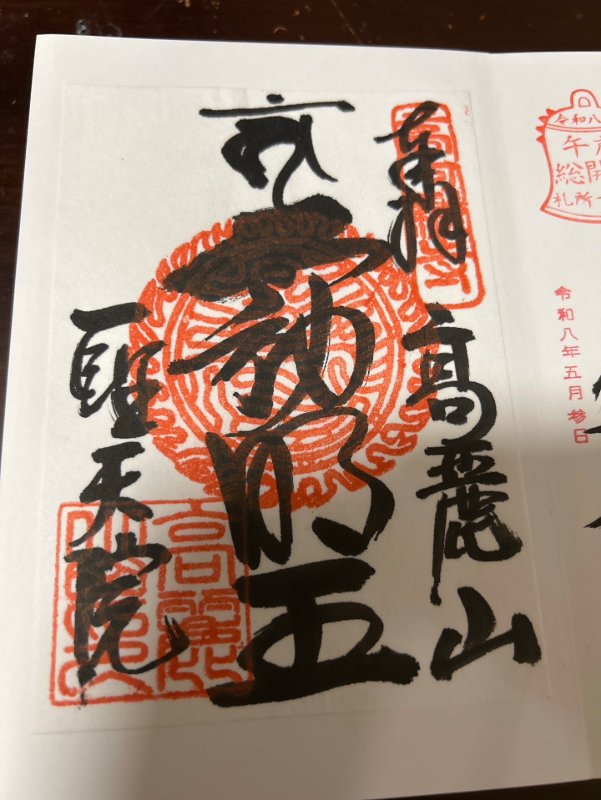 令和八
午
総開
札所
令和八年五月参日
奉拝
高麗山
不動明王
聖天院